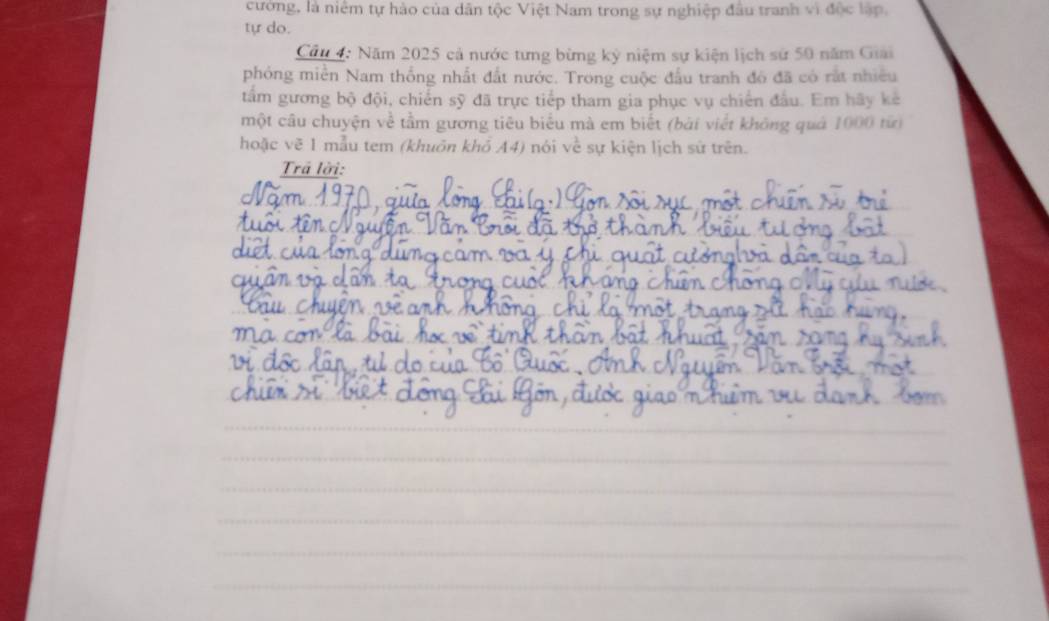 cường, là niềm tự hào của dân tộc Việt Nam trong sự nghiệp đấu tranh vì độc lập,
tự do.
Câu 4: Năm 2025 cả nước tưng bừng kỷ niệm sự kiện lịch sử 50 năm Giải
phóng miền Nam thống nhất đất nước. Trong cuộc đấu tranh đó đã có rất nhiều
tấm gương bộ đội, chiến sỹ đã trực tiếp tham gia phục vụ chiến đấu. Em hãy kể
một câu chuyện về tấm gương tiêu biểu mà em biết (bài viết không quá 1000 từ)
hoặc vẽ 1 mẫu tem (khuôn khổ A4) nói về sự kiện lịch sử trên.
Trả lời:
Năm 1970, giữa lòng Sài Gòn sôi sục, một chiến sĩ trẻ
tuổi tên Nguyễn Văn Trỗi đã trở thành biểu tượng bất
diệt của lòng dũng cảm và ý chí quật cường (và dân của ta)
quân và dân ta trong cuộc kháng chiến chống Mỹ cứu nước.
Câu chuyện về anh không chỉ là một trang sử hào hùng,
mà còn là bài học về tinh thần bất khuất, sẵn sàng hy sinh
vì độc lập, tự do của Tổ Quốc. Anh Nguyễn Văn Trỗi, một
chiến sĩ biệt động Sài Gòn, được giao nhiệm vụ đánh bom